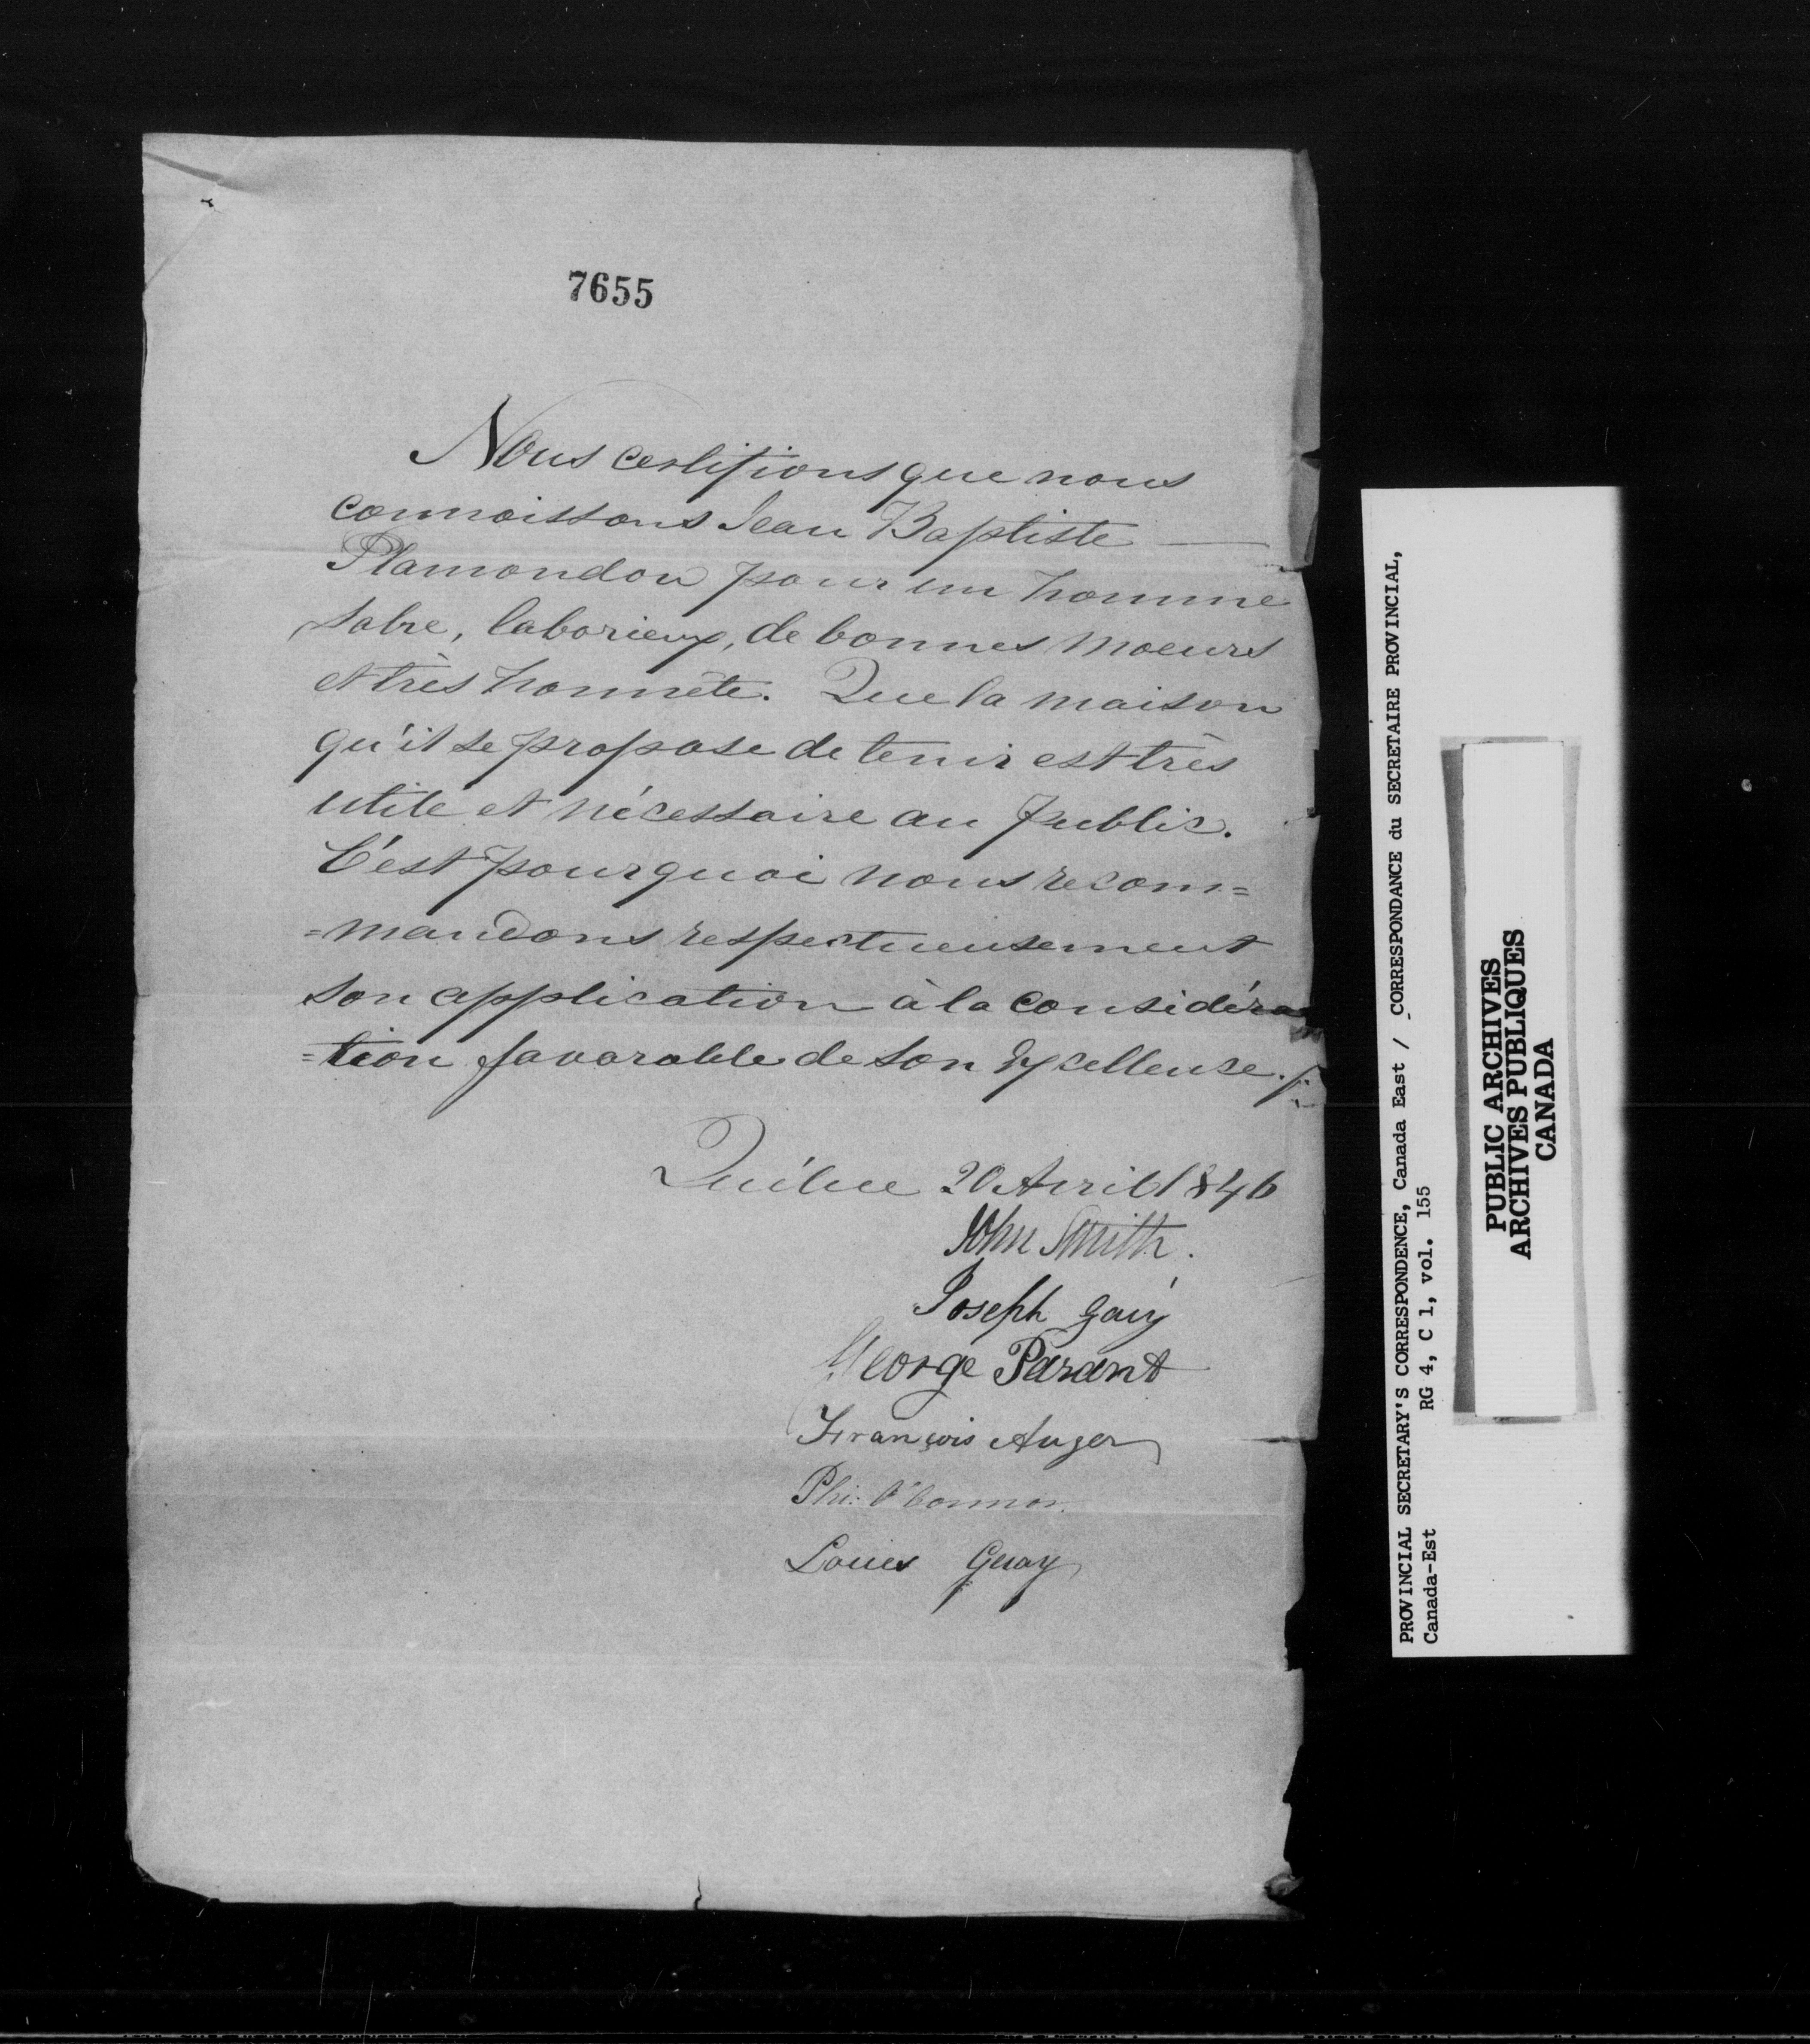 7655
Nous certifions que nous
connoissons Jean Baptiste —
Plamondon pour un homme
sobre, laborieux, de bonnes moeurs
et très honnête. Que la maison
qu'il se propose de tenir est très
utile et nécessaire au public.
C'est pourquoi nous recom=
=mandons respectueusement
son application à la considéra
=tion favorable de Son Excellence./.
Québec 20 Avril 1846
John Smith.
Joseph Gaúy
George Parant
François Auger
Phi: O'Connor.
Louis Guay
PROVINCIAL SECRETARY'S CORRESPONDENCE, Canada East / CORRESPONDANCE du SECRETAIRE PROVINCIAL,
Canada-Est RG 4, C 1, vol. 155
PUBLIC ARCHIVES
ARCHIVES PUBLIQUES
CANADA